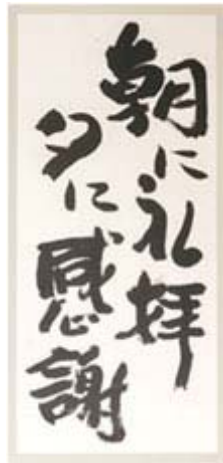 朝に礼拝
夕に感謝